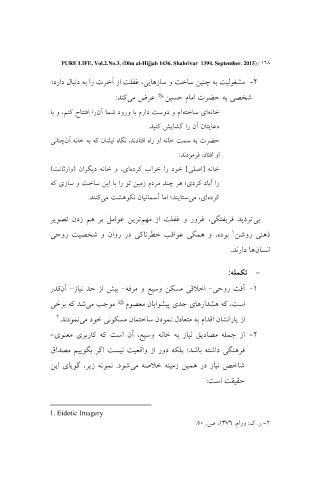 PURE LIFE, Vol.2.No.3, (Dhu al-Hijjah 1436. Shahrivar 1394. September. 2015) / ۱۶۸
۲- مشغولیت به چنین ساخت و سازهایی، غفلت از آخرت را به دنبال دارد؛
شخصی به حضرت امام حسین عرض می‌کند:
خانه‌ای ساخته‌ام و دوست دارم با ورود شما آن‌را افتتاح کنم، و با
دعایتان آن را گشایش کنید.
حضرت به سمت خانه او راه افتادند، نگاه ایشان که به خانه آن‌چنانی
او افتاد، فرمودند:
خانه [اصلی] خود را خراب کرده‌ای، و خانه دیگران (وارثانت)
را آباد کردی؛ هر چند مردم زمین تو را با این ساخت و سازی که
کرده‌ای، می‌ستایند؛ اما آسمانیان نکوهشت می‌کنند.
بی‌تردید فریفتگی، غرور و غفلت از مهم‌ترین عوامل بر هم زدن تصویر
ذهنی روشن۱ بوده، و همگی عواقب خطرناکی در روان و شخصیت روحی
انسان‌ها دارند.
- تکمله:
۱- آفت روحی- اخلاقی مسکن وسیع و مرفه- بیش از حد نیاز- آن‌قدر
است، که هشدارهای جدی پیشوایان معصوم موجب می‌شد که برخی
از یارانشان اقدام به متعادل نمودن ساختمان مسکونی خود می‌نمودند.۲
۲- از جمله مصادیق نیاز به خانه وسیع، آن است که کاربری معنوی-
فرهنگی داشته باشد؛ بلکه دور از واقعیت نیست اگر بگوییم مصداق
شاخص نیاز در همین زمینه خلاصه می‌شود. نمونه زیر، گویای این
حقیقت است:
1. Eidetic Imagery
۲- ر. ک: ورام، ۱۳۷۶، ص. ۵۰.